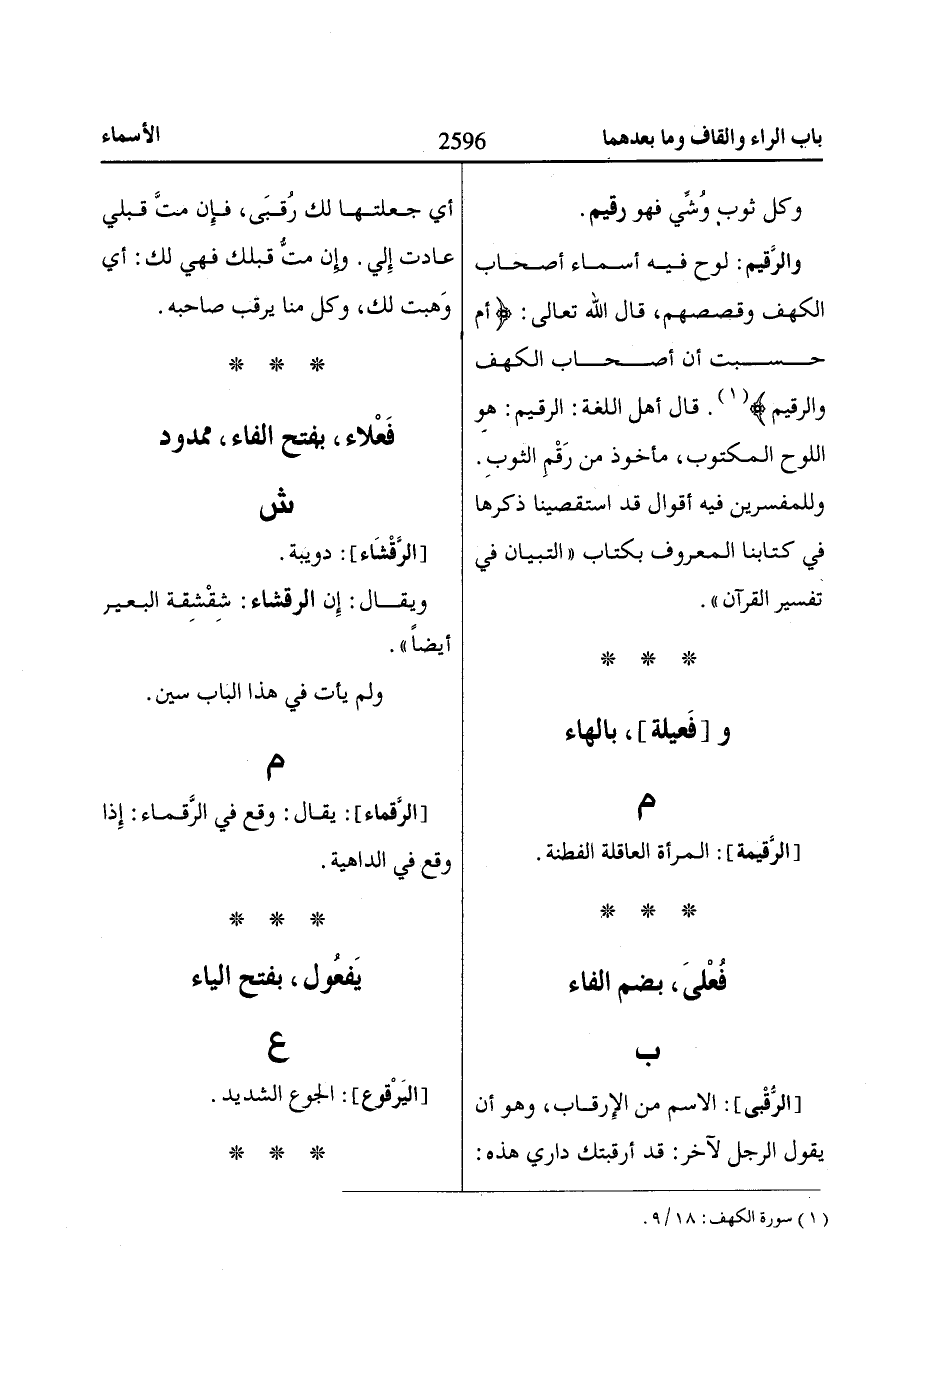 باب الراء والقاف وما بعدهما 2596 الأسماء
وكل ثوب وُشِّي فهو رقيم.
والرَّقيم: لوح فيه أسماء أصحاب
الكهف وقصصهم، قال الله تعالى: ﴿أم
حسبت أن أصحاب الكهف
والرقيم﴾(١). قال أهل اللغة: الرقيم: هو
اللوح المكتوب، مأخوذ من رَقْمِ الثوبِ.
وللمفسرين فيه أقوال قد استقصينا ذكرها
في كتابنا المعروف بكتاب «التبيان في
تفسير القرآن».
* * *
و [فَعيلة]، بالهاء
م
[الرَّقيمة]: المرأة العاقلة الفطنة.
* * *
فُعْلىَ، بضم الفاء
ب
[الرُّقْبى]: الاسم من الإرقاب، وهو أن
يقول الرجل لآخر: قد أرقبتك داري هذه:
أي جعلتها لك رُقبَى، فإن متَّ قبلي
عادت إلي. وإن متُّ قبلك فهي لك: أي
وَهبت لك، وكل منا يرقب صاحبه.
* * *
فَعْلاء، بفتح الفاء، ممدود
ش
[الرَّقْشَاء]: دويبة.
ويقال: إن الرقشاء: شِقْشِقة البعير
أيضاً».
ولم يأت في هذا الباب سين.
م
[الرَّقماء]: يقال: وقع في الرَّقماء: إذا
وقع في الداهية.
* * *
يَفعُول، بفتح الياء
ع
[اليَرْقوع]: الجوع الشديد.
* * *
(١) سورة الكهف: ١٨/٩.